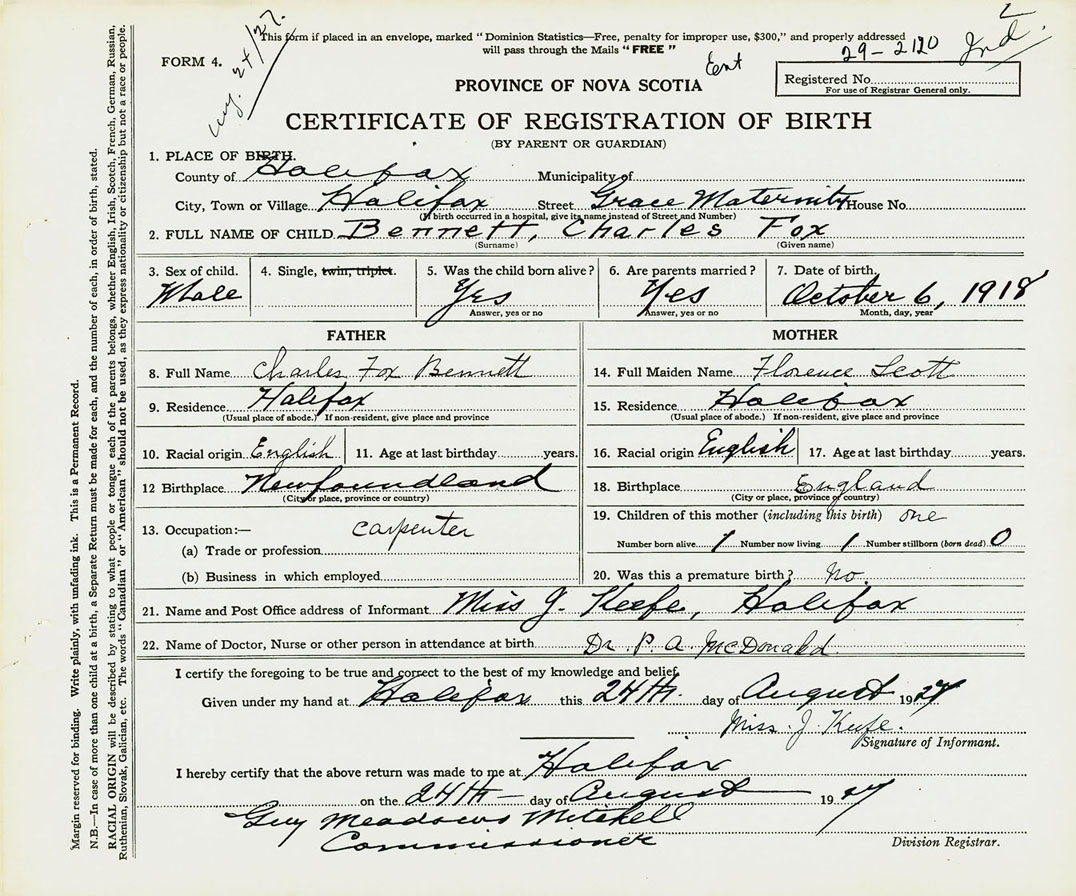 This form if placed in an envelope, marked "Dominion Statistics—Free, penalty for improper use, $300," and properly addressed
will pass through the Mails "FREE"
FORM 4.
Aug. 24/27.
29-2120
2nd
Ent
PROVINCE OF NOVA SCOTIA
Registered No.
For use of Registrar General only.
CERTIFICATE OF REGISTRATION OF BIRTH
(BY PARENT OR GUARDIAN)
1. PLACE OF BIRTH.
County of Halifax Municipality of
City, Town or Village Halifax Street Grace Maternity House No.
(If birth occurred in a hospital, give its name instead of Street and Number)
2. FULL NAME OF CHILD Bennett, Charles Fox
(Surname) (Given name)
3. Sex of child. 4. Single, twin, triplet. 5. Was the child born alive? 6. Are parents married? 7. Date of birth,
Male Yes Yes October 6, 1918
Answer, yes or no Answer, yes or no Month, day, year
FATHER MOTHER
8. Full Name Charles Fox Bennett 14. Full Maiden Name Florence Scott
9. Residence Halifax 15. Residence Halifax
(Usual place of abode.) If non-resident, give place and province (Usual place of abode.) If non-resident, give place and province
10. Racial origin English 11. Age at last birthday years. 16. Racial origin English 17. Age at last birthday years.
12 Birthplace Newfoundland 18. Birthplace England
(City or place, province or country) (City or place, province or country)
13. Occupation:— carpenter 19. Children of this mother (including this birth) one
(a) Trade or profession Number born alive 1 Number now living 1 Number stillborn (born dead) 0
(b) Business in which employed 20. Was this a premature birth? No.
21. Name and Post Office address of Informant Miss J. Keefe, Halifax
22. Name of Doctor, Nurse or other person in attendance at birth Dr. P. A. McDonald
I certify the foregoing to be true and correct to the best of my knowledge and belief,
Given under my hand at Halifax this 24th day of August 1927
Miss J. Keefe.
Signature of Informant.
I hereby certify that the above return was made to me at Halifax
on the 24th day of August 1927
Guy Meadows Mitchell
Commissioner
Division Registrar.
Margin reserved for binding. Write plainly, with unfading ink. This is a Permanent Record.
N.B.—In case of more than one child at a birth, a Separate Return must be made for each, and the number of each, in order of birth, stated.
RACIAL ORIGIN will be described by stating to what people or tongue each of the parents belongs, whether English, Irish, Scotch, French, German, Russian,
Ruthenian, Slovak, Galician, etc. The words "Canadian" or "American" should not be used, as they express nationality or citizenship but not a race or people.